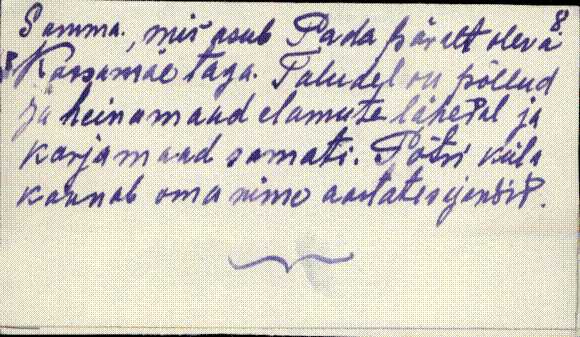 8
Samma, mis asub Pada pärält oleva
Karsamäe taga. Taludel on põllud
ja heinamaad elamute lähedal ja
karjamaad samati. Põtri küla
kannab oma nime aastatesajandid.